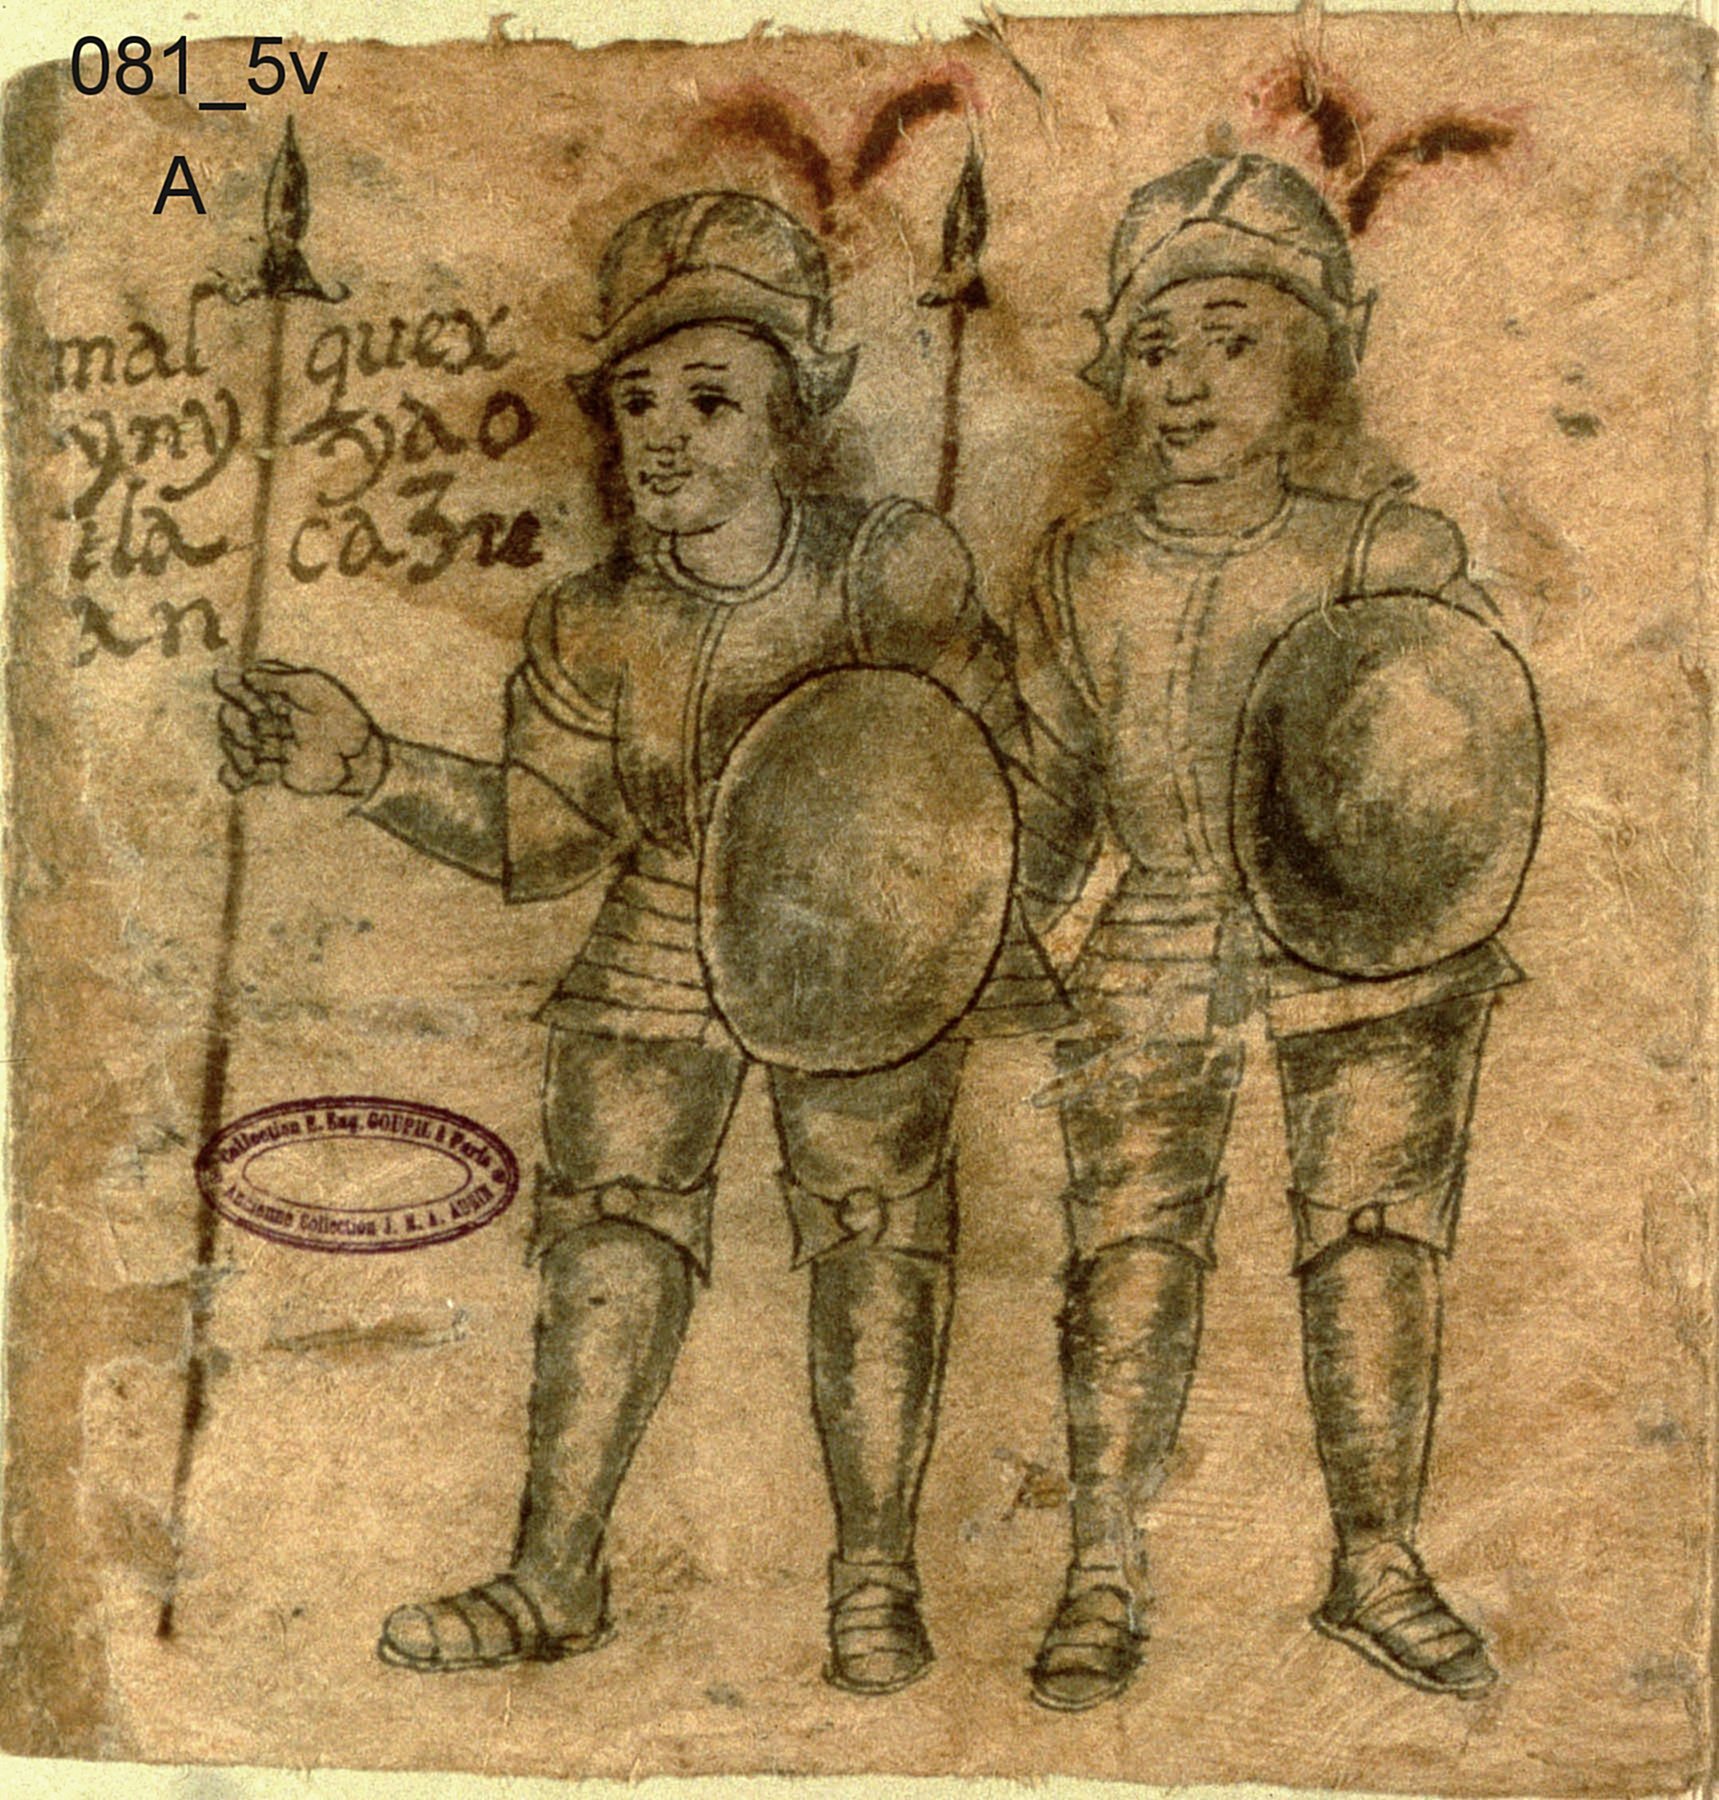 081_5v
A
mal quex
yny zyao
ila cazu
an
Collection E. Eug. GOUPIL à Paris
Ancienne Collection J. M. A. AUBIN